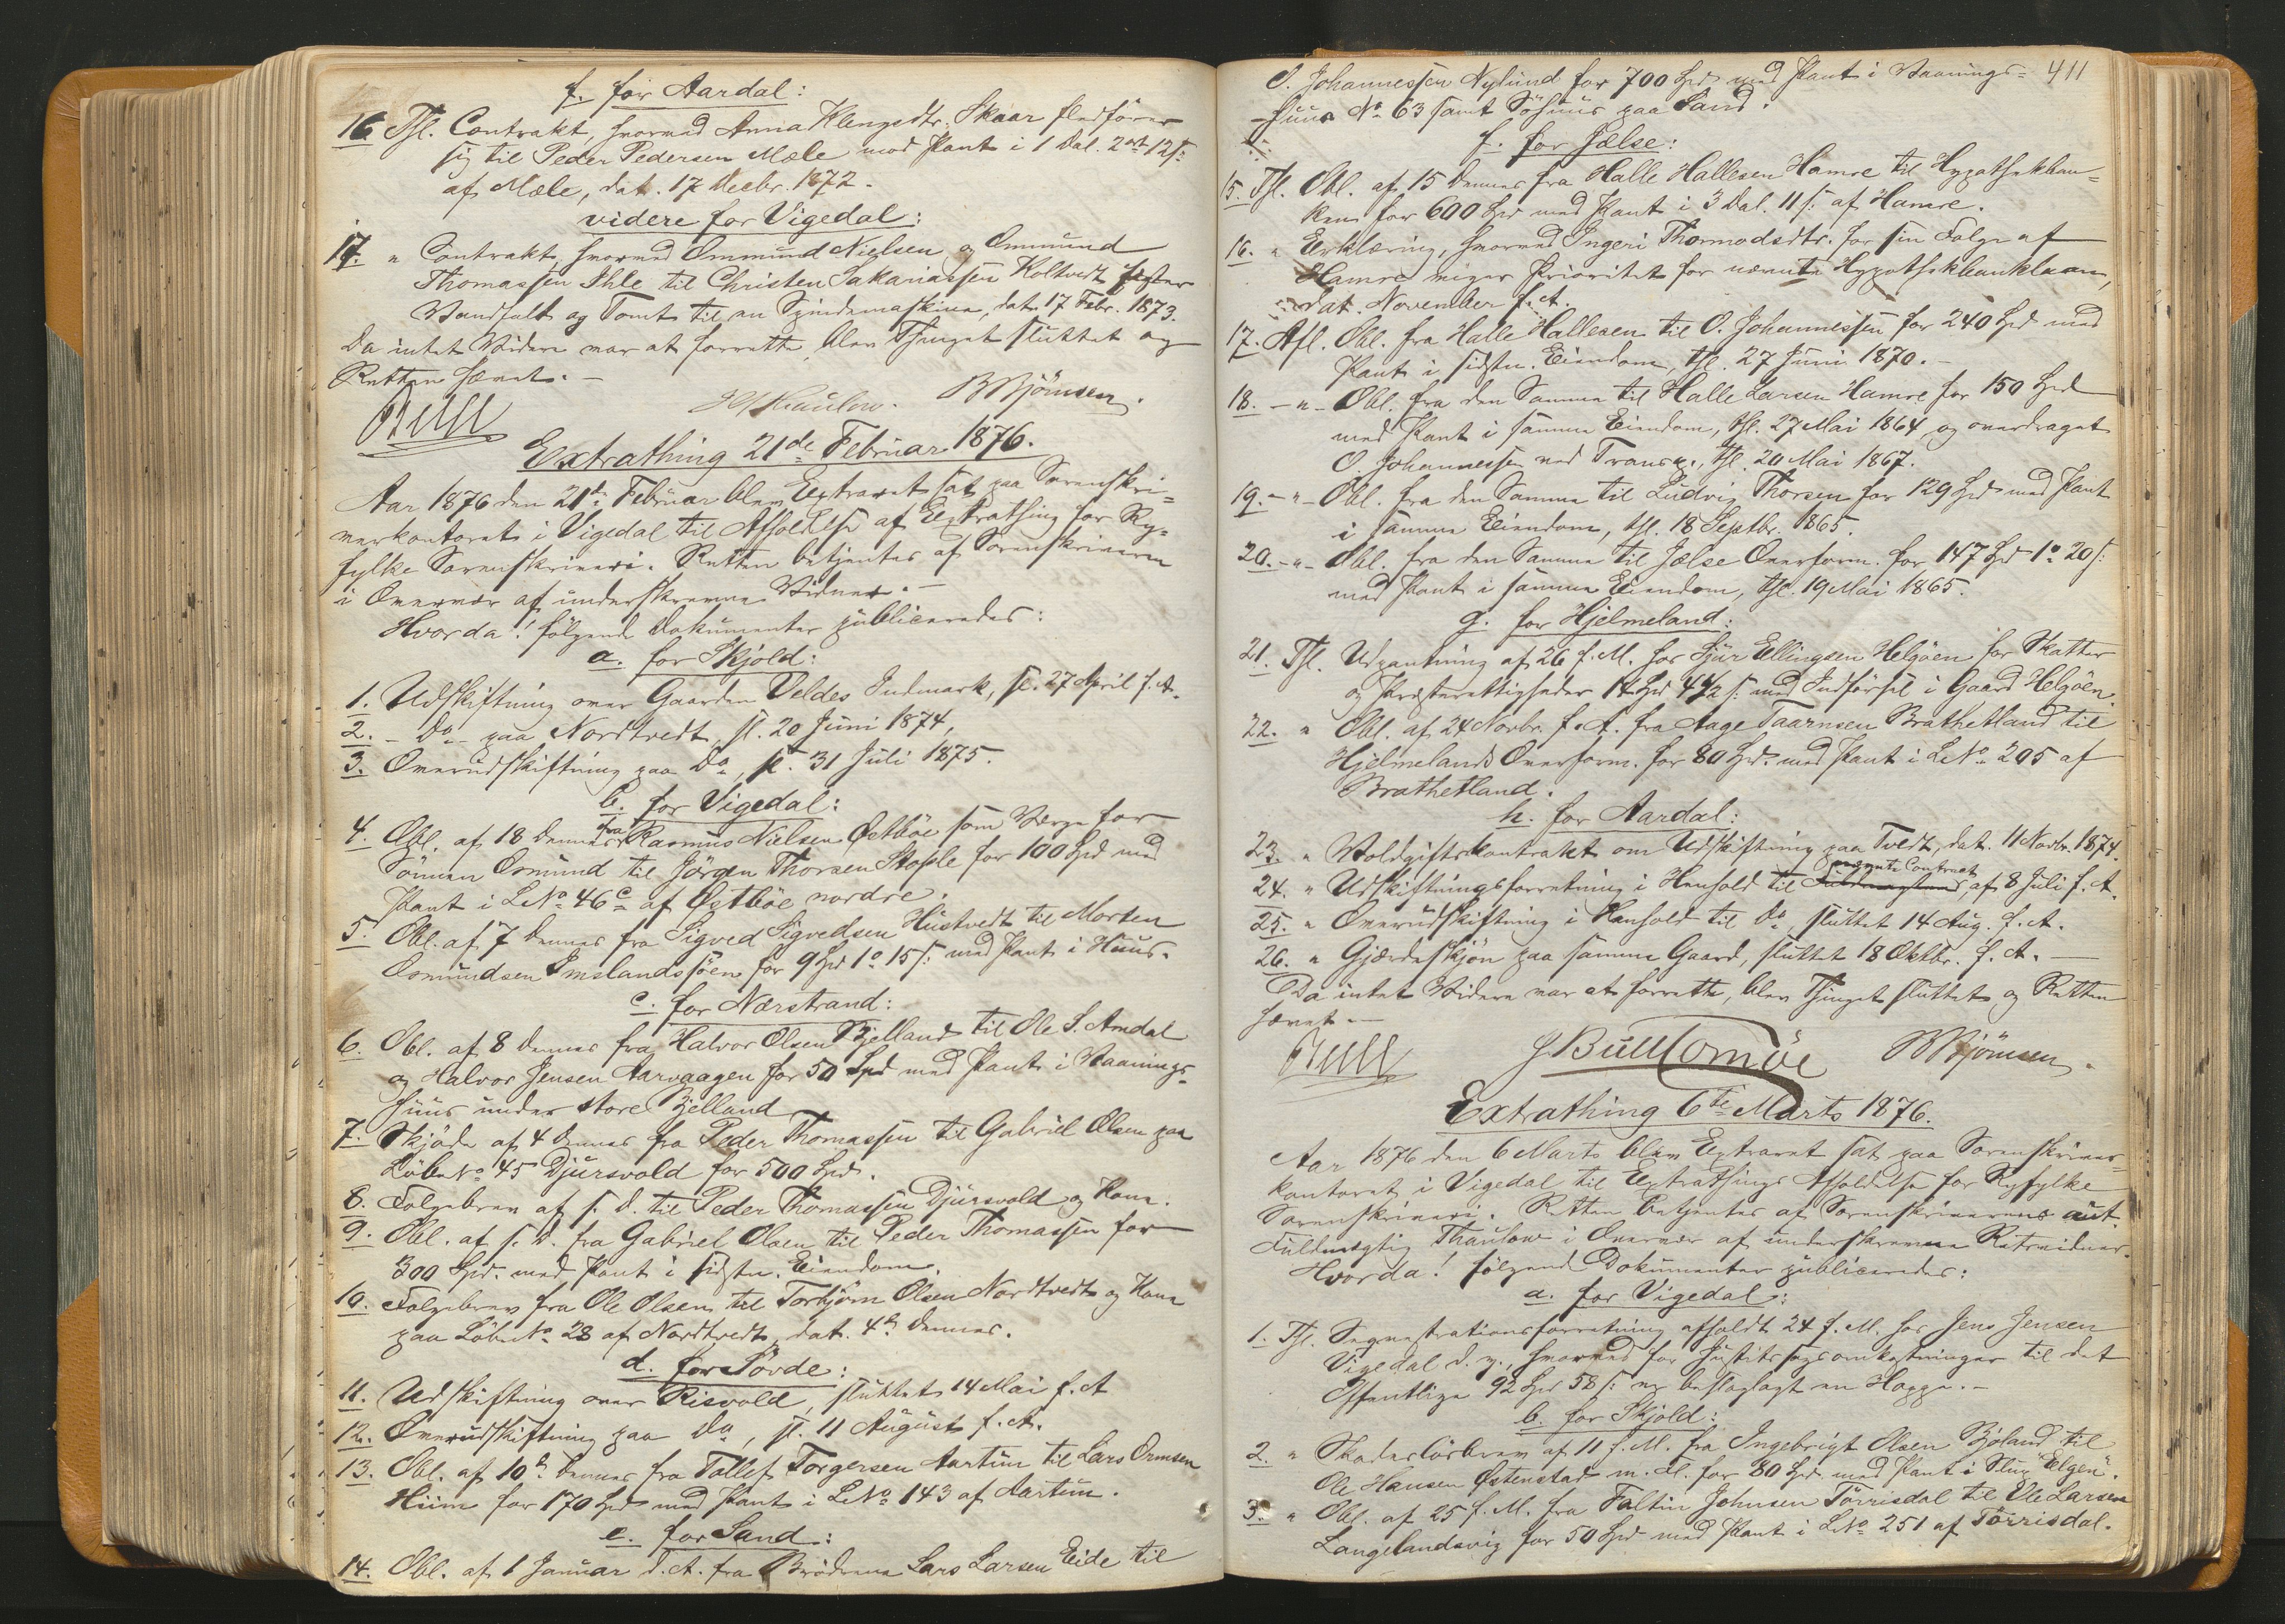 f. for Aardal:
16. Thl. Contrakt, hvorved Anna Klengsdtr. Skaar fledfører
sig til Peder Pedersen Mæle med Pant i 1 Dal. 2 ort 12 s:
af Mæle, dat. 17 Decbr. 1872.
videre for Vigedal:
17. " Contrakt, hvorved Ommund Nielsen og Ommund
Thomassen Ihle til Christen Sakariassen Koltvedt fæster
Vandfald og Tomt til en Spindemaskine, dat. 17 Febr. 1873.
Da intet Videre var at forrette, blev Thinget sluttet og
Retten hævet. –
Bull Thaulow. B Bjørnsen.
Extrathing 21de Februar 1876.
Aar 1876 den 21de Februar blev Extraret sat paa Sorenskri=
verkontoret i Vigedal til Afholdelse af Extrathing for Ry=
fylke Sorenskriveri. Retten betjentes af Sorenskriveren
i Overvær af underskrevne Vidner. –
Hvorda! følgende Dokumenter publiceredes:
a. for Skjold:
1. Udskiftning over Gaarden Veldes Indmark, sl. 27 April f. A.
2. – Do – paa Nordtvedt, sl. 20 Juni 1874,
3. Overudskiftning paa Do, sl. 31 Juli 1875.
b. for Vigedal:
4. Obl. af 18 dennes fra Rasmus Nielsen Østbøe som Værge for
Sønnen Osmund til Jørgen Thorsen Stople for 100 Spd med
Pant i LNo 46c af Østbøe nordre.
5. Obl. af 7 dennes fra Sigved Sigvedsen Hustvedt til Morten
Osmundsen Imslandssjøen for 9 Spd 1o 15 s: med Pant i Huus.
c. for Nærstrand:
6. Obl. af 8 dennes fra Halvor Olsen Bjelland til Ole S. Amdal
og Halvor Jensen Aarvaagen for 50 Spd med Pant i Vaanings=
huus under store Bjelland
7. Skjøde af 4 dennes fra Peder Thomassen til Gabriel Olsen paa
Løbe No 45 Djursvold for 500 Spd.
8. Folgebrev af s. D. til Peder Thomassen Djursvold og Kone.
9. Obl. af s. D. fra Gabriel Olsen til Peder Thomassen for
300 Spd. med Pant i sidstn. Eiendom.
10. Folgebrev fra Ole Olsen til Torbjørn Olsen Nordtvedt og Kone
paa Løbe No 28 af Nordtvedt, dat. 4de dennes.
d. for Søvde:
11. Udskiftning over Risvold, sluttet 14 Mai f. A
12. Overudskiftning paa Do, sl. 11 August f. A.
13. Obl. af 10de dennes fra Tollef Torgersen Aartun til Lars Ormsen
Hiim for 170 Spd med Pant i LNo 143 af Aartun.
e. for Sand:
14. Obl. af 1 Januar d. A. fra Brødrene Lars Larsen Eide til
411
O. Johannessen Nylund for 700 Spd med Pant i Vaanings=
huus No 63 samt Søhuus paa Sand.
f. for Jælse:
15. Thl. Obl. af 15 dennes fra Halle Hallesen Hamre til Hypothekban=
ken for 600 Spd med Pant i 3 Dal. 11 s: af Hamre.
16. " Erklæring, hvorved Ingeri Thormodsdtr. for sin Folge af
Hamre viger Prioritet for nævnte Hypothekbanklaan,
dat. November f. A.
17. Afl. Obl. fra Halle Hallesen til O. Johannessen for 240 Spd med
Pant i sidstn. Eiendom, thl. 27 Juni 1870. –
18. – " – Obl. fra den Samme til Halle Larsen Hamre for 150 Spd
med Pant i samme Eiendom, thl. 27 Mai 1864 og overdraget
O. Johannessen ved Transp., thl. 20 Mai 1867.
19. – " – Obl. fra den Samme til Ludvig Thorsen for 129 Spd med Pant
i samme Eiendom, thl. 18 Septbr. 1865.
20. – " – Obl. fra den Samme til Jælse Overform. for 147 Spd 1o 20 s:
med Pant i samme Eiendom, thl. 19 Mai 1865.
g. for Hjelmeland:
21. Thl. Udpantning af 26 f. M. hos Sjur Ellingsen Helgøen for Skatter
og Præsterettigheder 14 Spd 4 1/2 s: med Indførsel i Gaard Helgøen.
22. " Obl. af 24 Novbr. f. A. fra Aage Taarnsen Brathetland til
Hjelmelands Overform. for 80 Spd. med Pant i LNo 205 af
Brathetland.
h. for Aardal:
23. " Voldgiftskontrakt om Udskiftning paa Tvedt, dat. 11 Novbr. 1874.
24. " Udskiftningsforretning i Henhold til nævnte Contract, af 8 Juli f. A.
25. " Overudskiftning i Henhold til Do, sluttet 14 Aug. f. A.
26. " Gjærdeskjøn paa samme Gaard, sluttet 18 Oktbr. f. A. –
Da intet Videre var at forrette, blev Thinget sluttet og Retten
hævet. –
Bull J. Bull Tornøe B Bjørnsen.
Extrathing 6te Marts 1876.
Aar 1876 den 6 Marts blev Extraret sat paa Sorenskriver=
kontoret i Vigedal til Extrathings Afholdelse for Ryfylke
Sorenskriveri. Retten betjentes af Sorenskriverens aut.
Fuldmægtig Thaulow i Overvær af underskrevne Retsvidner.
Hvorda! følgende Dokumenter publiceredes:
a. for Vigedal:
1. Thl. Sequestrationsforretning afholdt 24 f. M. hos Jens Jensen
Vigedal d. y., hvorved for Justitssagsomkostninger til det
Offentlige 92 Spd 58 s: er beslaglagt en Hoppe. –
b. for Skjold:
2. " Skadesløsbrev af 11 f. M. fra Ingebrigt Olsen Bjoland til
Ole Hansen Østenstad m. Fl. for 80 Spd. med Pant i Slup "Elgen".
3. " Obl. af 25 f. M. fra Faltin Johnsen Tørrisdal til Ole Larsen
Langelandsvig for 50 Spd med Pant i LNo 251 af Tørrisdal.